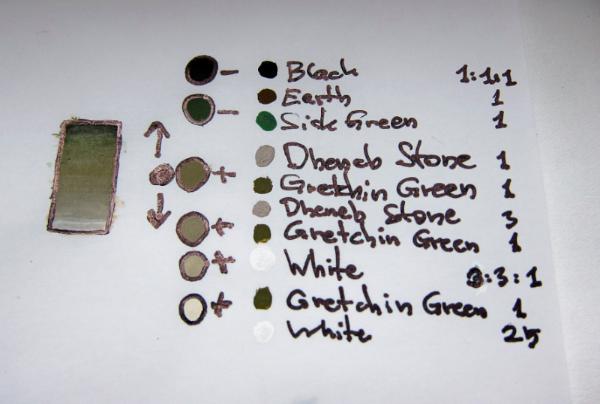 - Black 1:1:1
Earth 1
- Sick Green 1
Dheneb Stone 1
+ Gretchin Green 1
Dheneb Stone 3
+ Gretchin Green 1
+ White 3:3:1
+ Gretchin Green 1
White 25